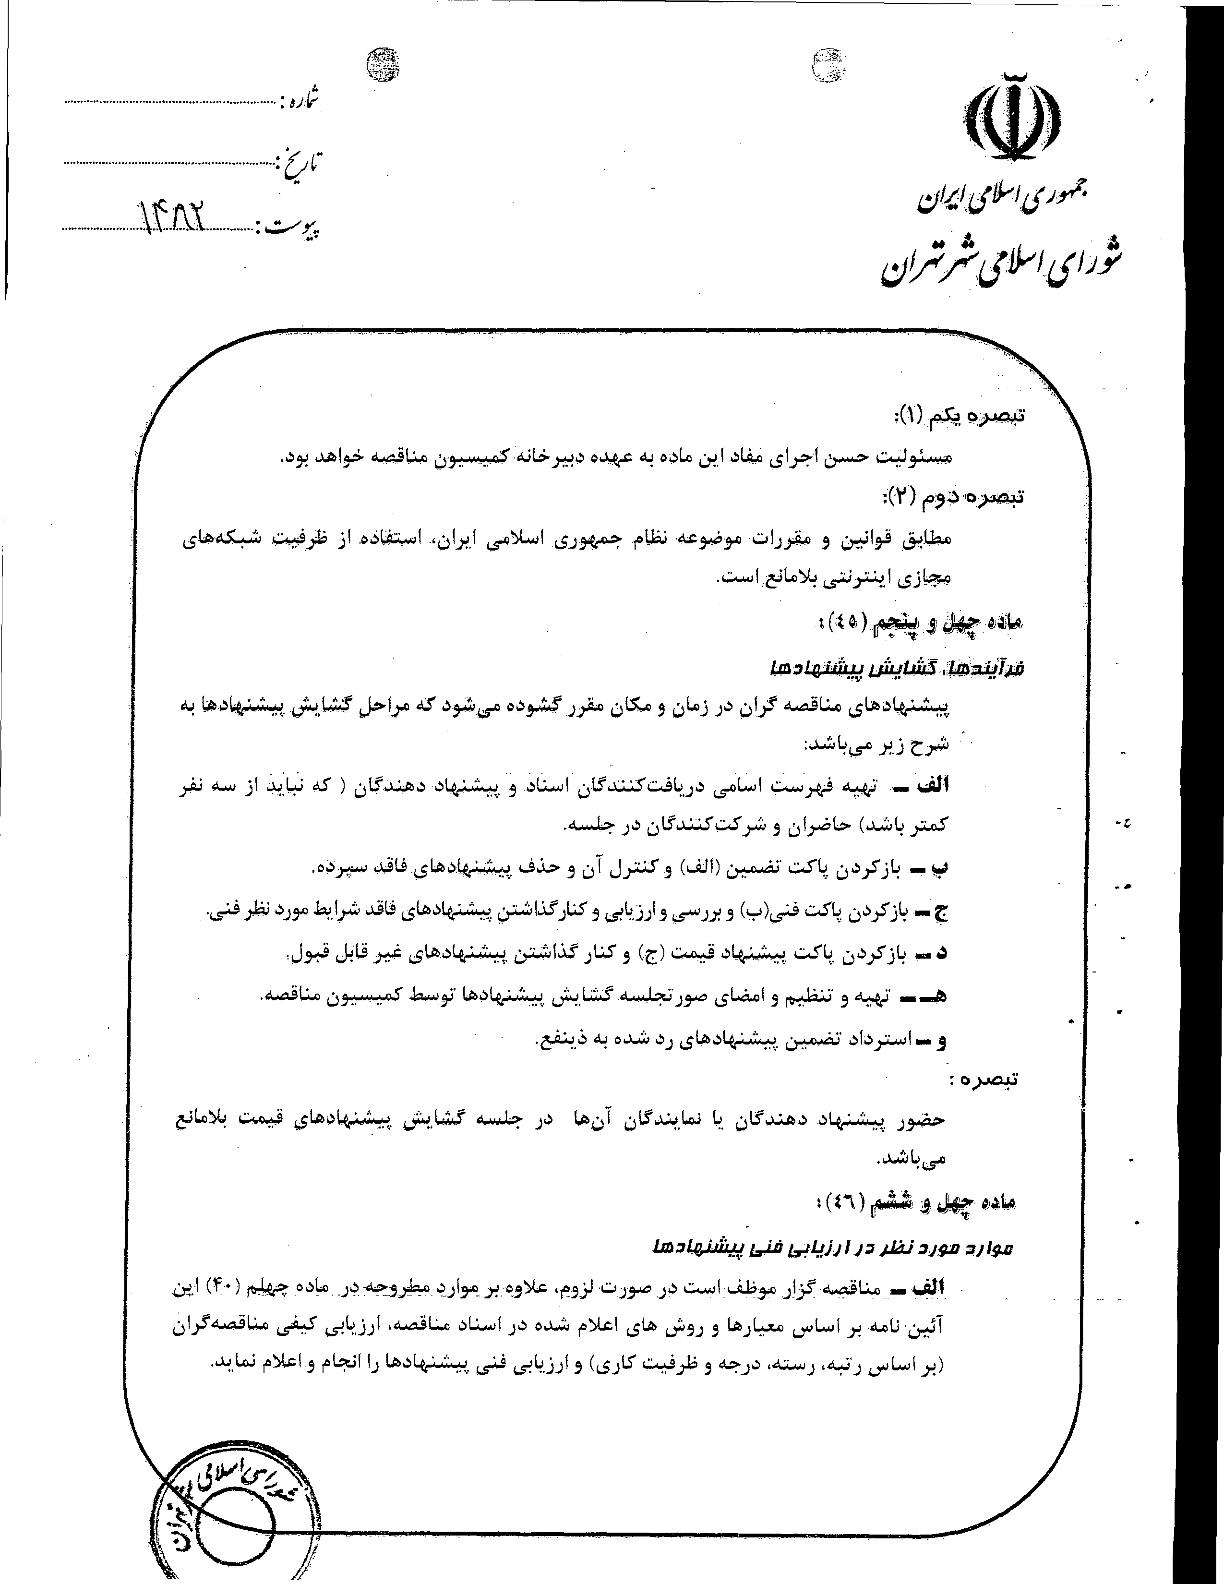 جمهوری اسلامی ایران
شورای اسلامی شهر تهران
شماره :
تاریخ :
پیوست : ۱۴۸۲
تبصره یکم (۱):
مسئولیت حسن اجرای مفاد این ماده به عهده دبیرخانه کمیسیون مناقصه خواهد بود.
تبصره دوم (۲):
مطابق قوانین و مقررات موضوعه نظام جمهوری اسلامی ایران، استفاده از ظرفیت شبکه‌های
مجازی اینترنتی بلامانع است.
ماده چهل و پنجم (٤٥):
فرآیندها، گشایش پیشنهادها
پیشنهادهای مناقصه گران در زمان و مکان مقرر گشوده می‌شود که مراحل گشایش پیشنهادها به
شرح زیر می‌باشد:
الف – تهیه فهرست اسامی دریافت‌کنندگان اسناد و پیشنهاد دهندگان ( که نباید از سه نفر
کمتر باشد) حاضران و شرکت‌کنندگان در جلسه.
ب – بازکردن پاکت تضمین (الف) و کنترل آن و حذف پیشنهادهای فاقد سپرده.
ج – بازکردن پاکت فنی(ب) و بررسی و ارزیابی و کنارگذاشتن پیشنهادهای فاقد شرایط مورد نظر فنی.
د – بازکردن پاکت پیشنهاد قیمت (ج) و کنار گذاشتن پیشنهادهای غیر قابل قبول.
هـ – تهیه و تنظیم و امضای صورتجلسه گشایش پیشنهادها توسط کمیسیون مناقصه.
و – استرداد تضمین پیشنهادهای رد شده به ذینفع.
تبصره :
حضور پیشنهاد دهندگان یا نمایندگان آن‌ها در جلسه گشایش پیشنهادهای قیمت بلامانع
می‌باشد.
ماده چهل و ششم (٤٦):
موارد مورد نظر در ارزیابی فنی پیشنهادها
الف – مناقصه گزار موظف است در صورت لزوم، علاوه بر موارد مطروحه در ماده چهلم (۴۰) این
آئین نامه بر اساس معیارها و روش های اعلام شده در اسناد مناقصه، ارزیابی کیفی مناقصه‌گران
(بر اساس رتبه، رسته، درجه و ظرفیت کاری) و ارزیابی فنی پیشنهادها را انجام و اعلام نماید.
شورای اسلامی شهر تهران